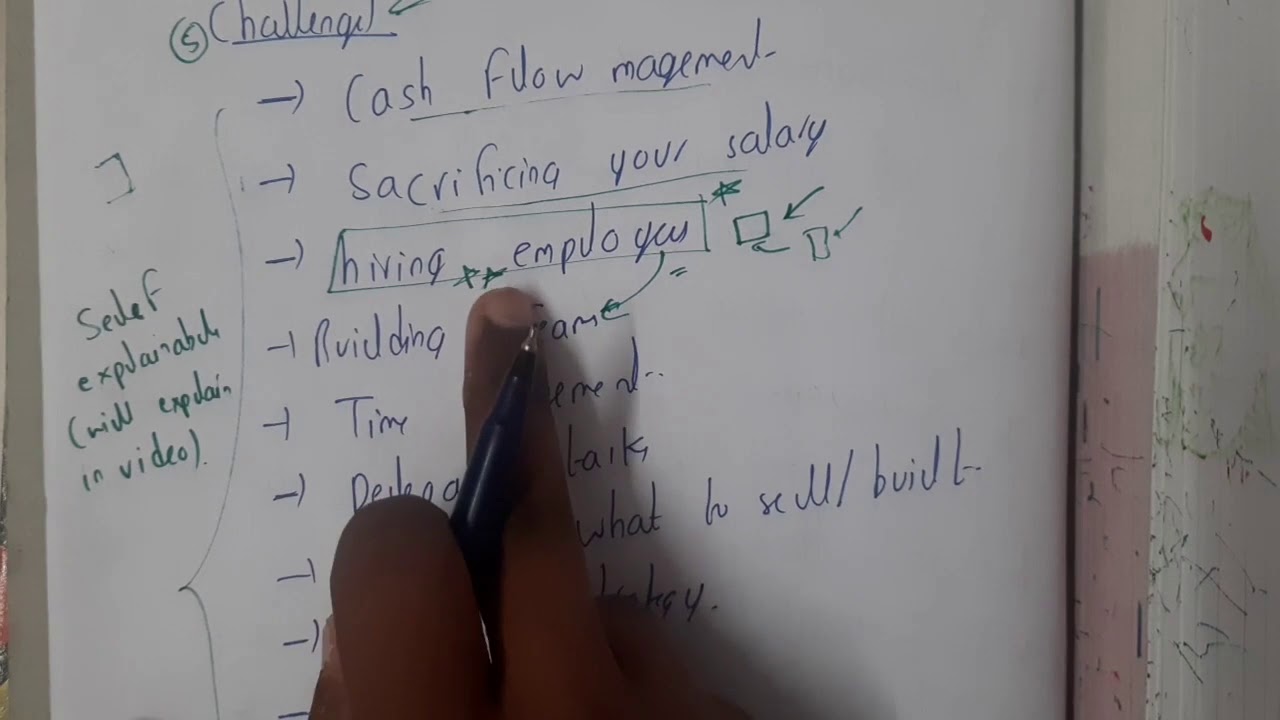 ⑤ Challenges
→ Cash flow magement
→ Sacrificing your salary
→ hiring employees
→ Building Team
→ Time
→ tasks
→ what to sell/built
Self
explainable
(will explain
in video).